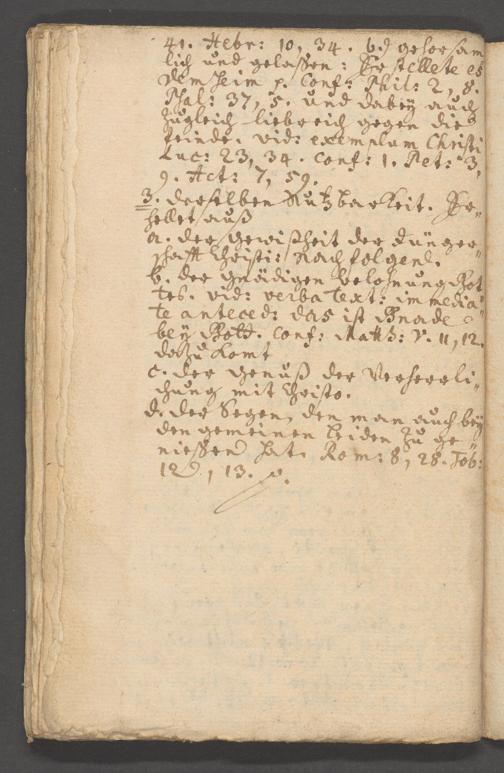 41. Hebr: 10, 34. b.) gehorsam
lich und gelaßen: Er stellete es
dem heim p. Conf: Phil: 2, 8.
Psal: 37, 5. und dabey auch
zugleich liebreich gegen die
feinde. vid: exemplum Christi
Luc: 23, 34. conf: 1. Pet: 3,
9. Act: 7, 59.
3. derselben Nutzbarkeit. Er-
hellet auß
a. der gewißheit der Jünger-
schafft Christi: Nachfolgend.
b. der gnädigen belohnung Got
tes. vid: verba Text: immedia-
te anteced: das ist Gnade
bey Gott. Conf: Matth: V. 11, 12.
dazu komt
c. der genuß der Verherrli-
chung mit Christo.
d. der Segen, den man auch bey
den gemeinen leiden zu ge-
nießen hat. Rom: 8, 28. Tob:
12, 13. p.